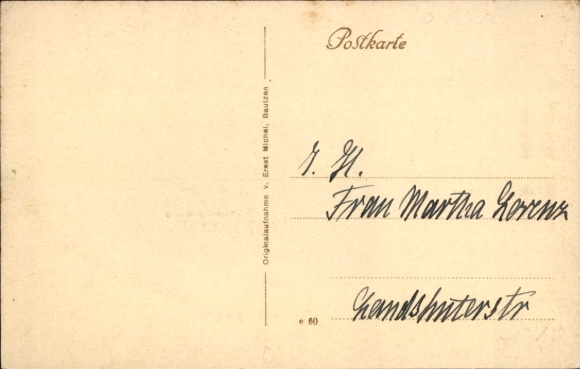 Postkarte
Originalaufnahme v. Ernst Michel, Bautzen
I. H.
Frau Martha Lorenz
Landshuterstr
e 60